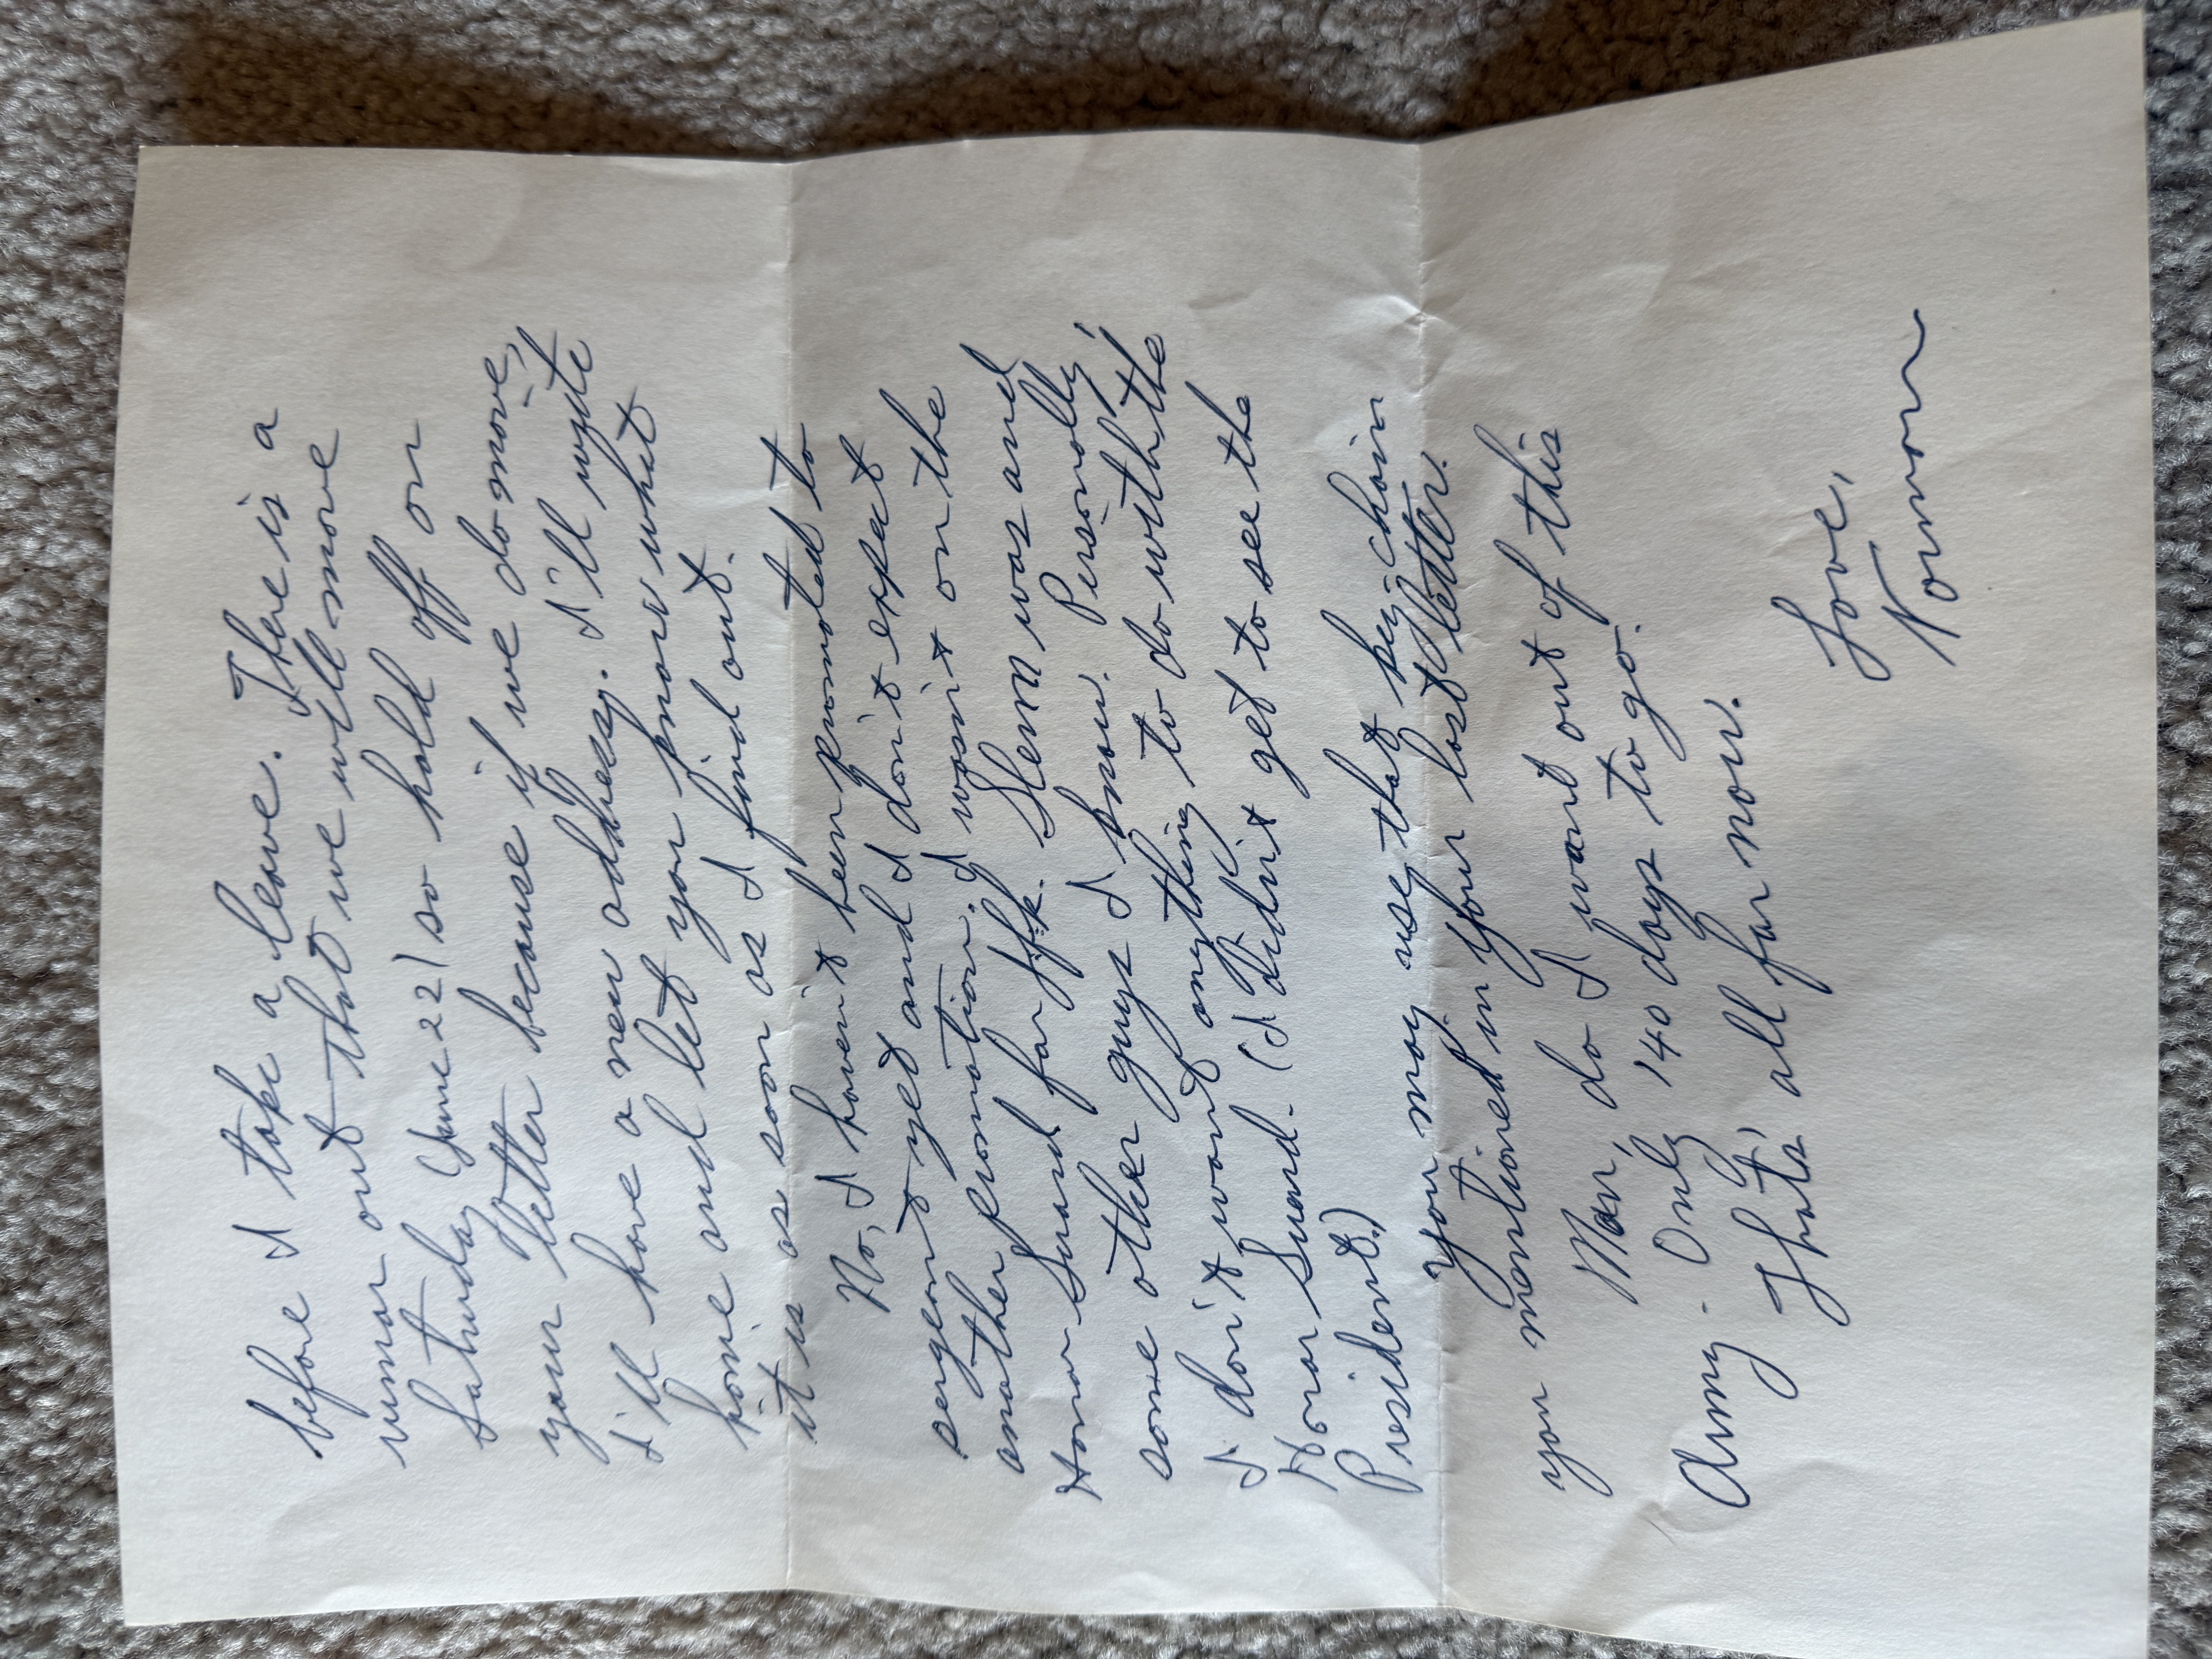 before I take a leave. There is a
rumor out that we will move
Saturday (June 22) so hold off on
your letter because if we do move,
I'll have a new address. I'll write
home and let you know what
it is as soon as I find out.
No, I haven't been promoted to
sergeant yet and I don't expect
another promotion. I wasn't on the
Honor Guard for JFK. Glenn was and
some other guys I know. Personally,
I don't want anything to do with the
Honor Guard. (I didn't get to see the
President.)
You may use that key-chain
you mentioned in your last letter.
Man, do I want out of this
Army. Only 140 days to go.
That's all for now.
Love,
Norman